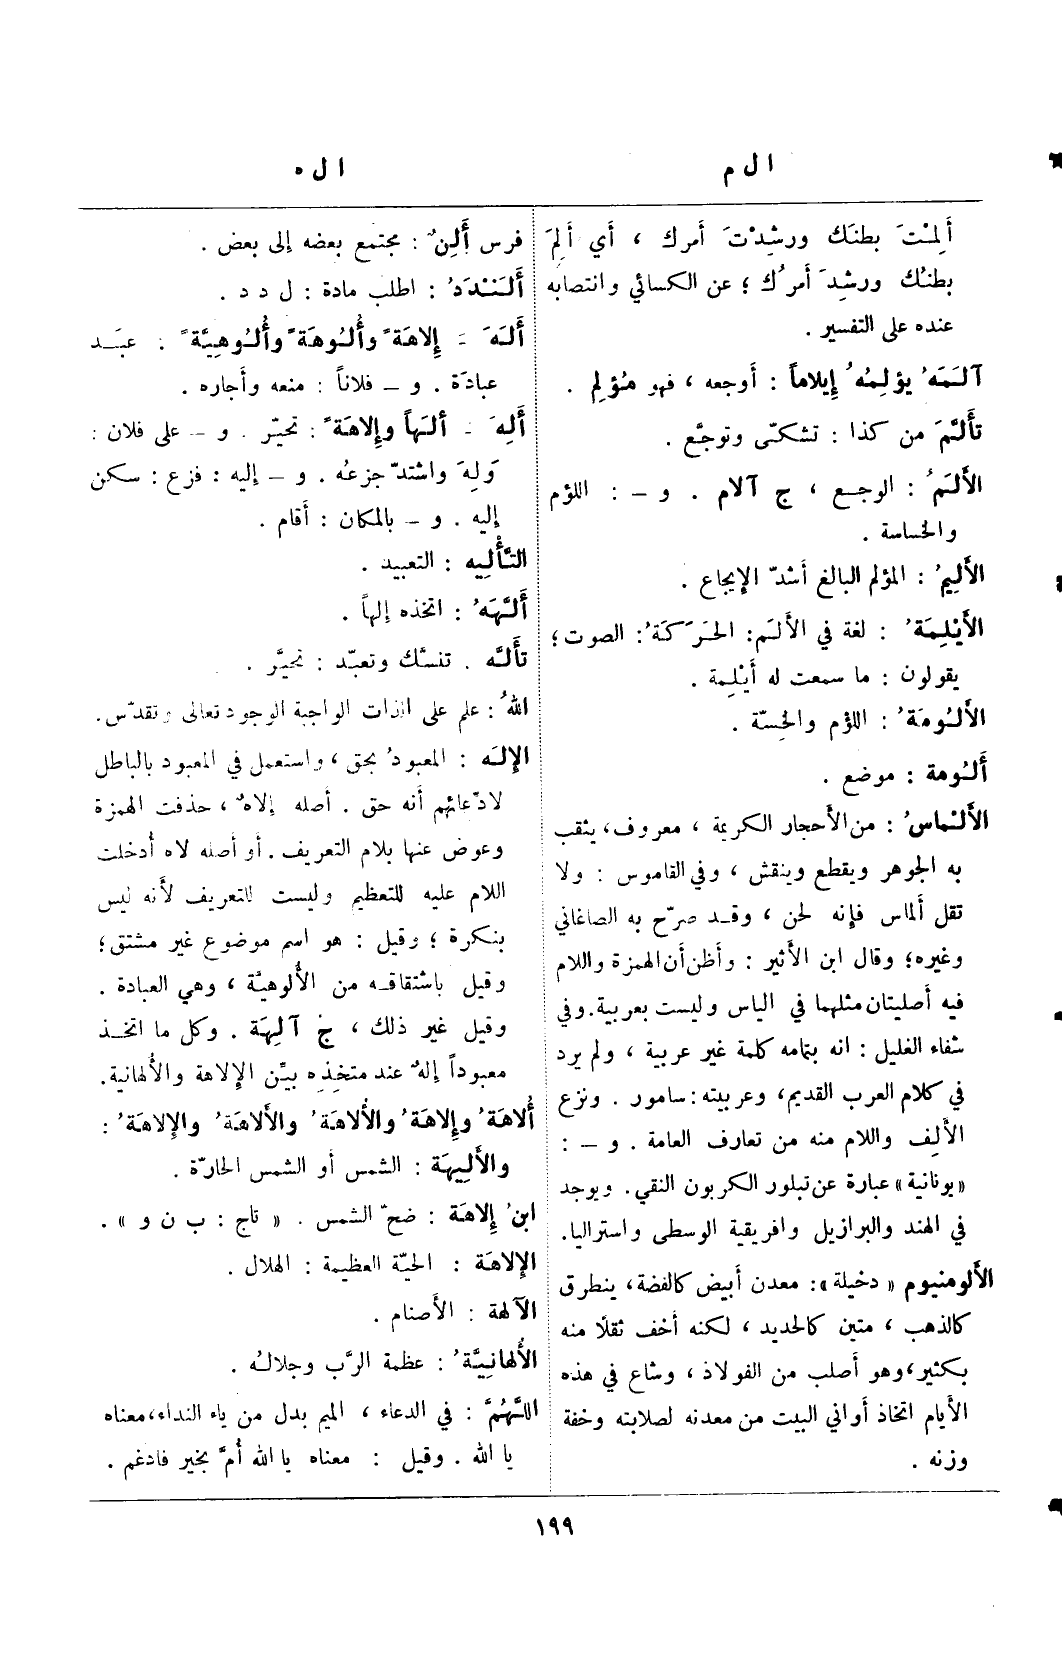 ا ل م
أَلِمْتَ بطنَك ورشِدْتَ أمرك ، أي أَلِمَ
بطنُك ورشِدَ أمرُك ؛ عن الكسائي وانتصابه
عنده على التفسير .
آلَمَهُ يؤلِمُهُ إيلاماً : أوجعه ، فهو مُؤلِم .
تأَلَّمَ من كذا : تشكّى وتوجَّع .
الأَلَمُ : الوجع ، ج آلام . و – : اللؤم
والخساسة .
الأَلِيمُ : المؤلم البالغ أشدّ الإيجاع .
الأَيْلِمَةُ : لغة في الألَم: الحَرَكَةُ: الصوت ؛
يقولون : ما سمعت له أَيْلِمة .
الأَلُومَةُ : اللؤم والخِسّة .
أَلُومة : موضع .
الأَلْماسُ : من الأحجار الكريمة ، معروف، يثقب
به الجوهر ويقطع وينقش ، وفي القاموس : ولا
تقل ألماس فإنه لحن ، وقد صرّح به الصاغاني
وغيره؛ وقال ابن الأثير : وأظن أن الهمزة واللام
فيه أصليتان مثلهما في الياس وليست بعربية.وفي
شفاء الغليل : انه بتمامه كلمة غير عربية ، ولم يرد
في كلام العرب القديم، وعربيته: سامور . ونزع
الألِف واللام منه من تعارف العامة . و – :
«يونانية» عبارة عن تبلور الكربون النقي. ويوجد
في الهند والبرازيل وافريقية الوسطى واستراليا.
الأَلومنيوم « دخيلة »: معدن أبيض كالفضة، ينطرق
كالذهب ، متين كالحديد ، لكنه أخف ثقلًا منه
بكثير،وهو أصلب من الفولاذ ، وشاع في هذه
الأيام اتخاذ أواني البيت من معدنه لصلابته وخفة
وزنه .
ا ل ه
فرس أَلِنٌ : مجتمع بعضه إلى بعض .
أَلَنْدَدُ : اطلب مادة : ل د د .
أَلَهَ َ إلاهَةً وأُلُوهَةً وأُلُوهِيَّةً : عبَد
عبادَة . و – فلاناً : منعه وأجاره .
أَلِهَ َ ألَهاً وإلاهَةً : تحيّر . و – على فلان :
وَلِهَ واشتدّ جزعُه . و – إليه : فزع : سكن
إليه . و – بالمكان : أقام .
التَّأْلِيه : التعبيد .
أَلَّهَهُ : اتخذه إلهاً .
تأَلَّه . تنسَّك وتعبّد : تحيَّر .
اللهُ : علم على الذات الواجبة الوجود تعالى وتقدّس.
الإلَه : المعبودُ بحق ، واستعمل في المعبود بالباطل
لادّعائهم أنه حق . أصله إلاهٌ ، حذفت الهمزة
وعوض عنها بلام التعريف . أو أصله لاه أُدخلت
اللام عليه للتعظيم وليست للتعريف لأنه ليس
بنكرة ؛ وقيل : هو اسم موضوع غير مشتق؛
وقيل باشتقاقه من الأُلوهيَّة ، وهي العبادة .
وقيل غير ذلك ، ج آلِهَة . وكل ما اتخذ
معبوداً إلهٌ عند متخِذِه بيّن الإلاهة والألهانية.
أُلاهَةُ وإلاهَةُ والأُلاهَةُ والأَلاهَةُ والإلاهَةُ :
والأَلِيهَة : الشمس أو الشمس الحارّة .
ابنُ إلاهَة : ضحّ الشمس . « تاج : ب ن و » .
الإلاهَة : الحيّة العظيمة : الهلال .
الآلهة : الأصنام .
الأُلهانِيَّةُ : عظمة الرَّب وجلالُه .
اللَّهُمَّ : في الدعاء ، الميم بدل من ياء النداء،معناه
يا الله . وقيل : معناه يا الله أُمَّ بخير فادغم .
١٩٩